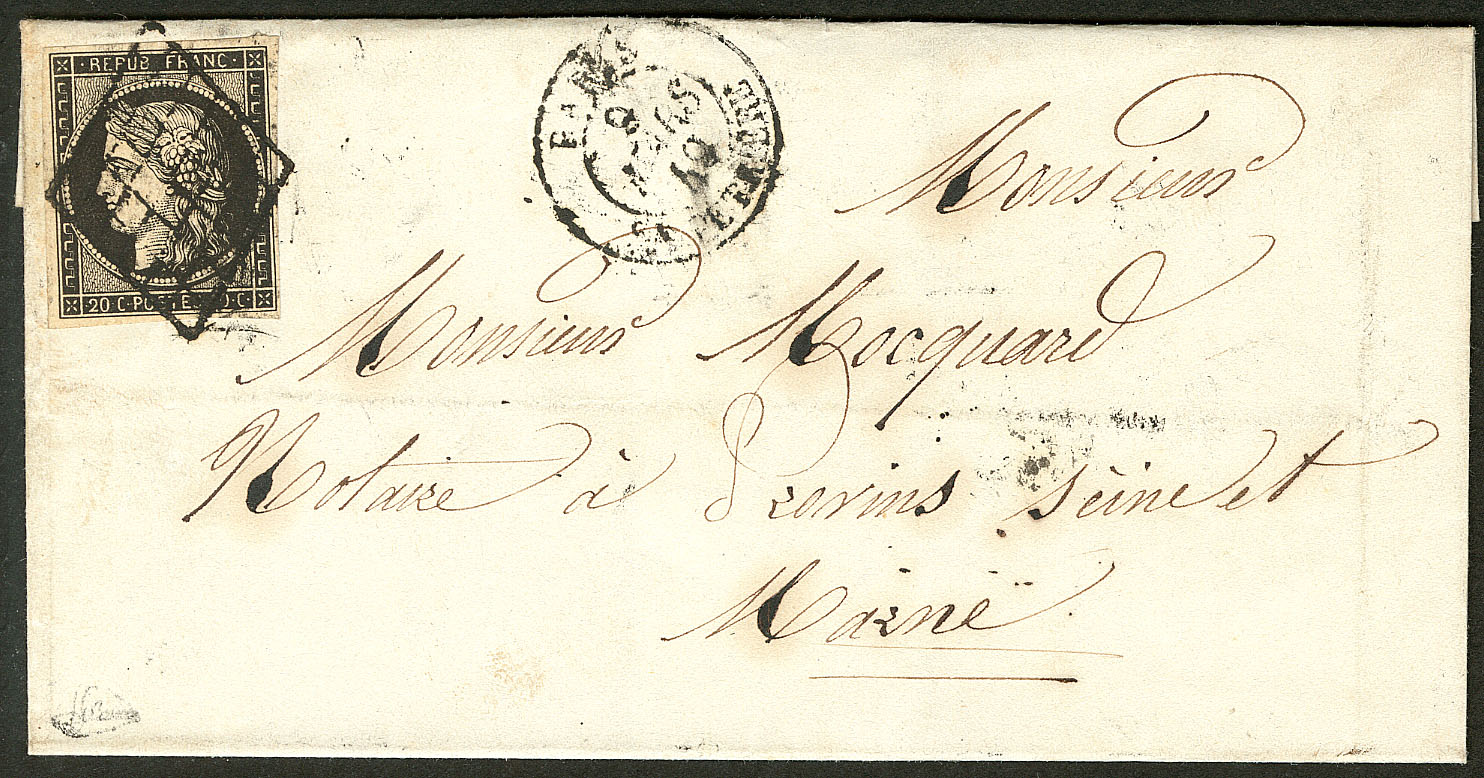 REPUB FRANC
20 C·POSTE
PARIS
8
MARS
49
Monsieur
Monsieur Mocquard
Notaire à Provins Seine et
Marne